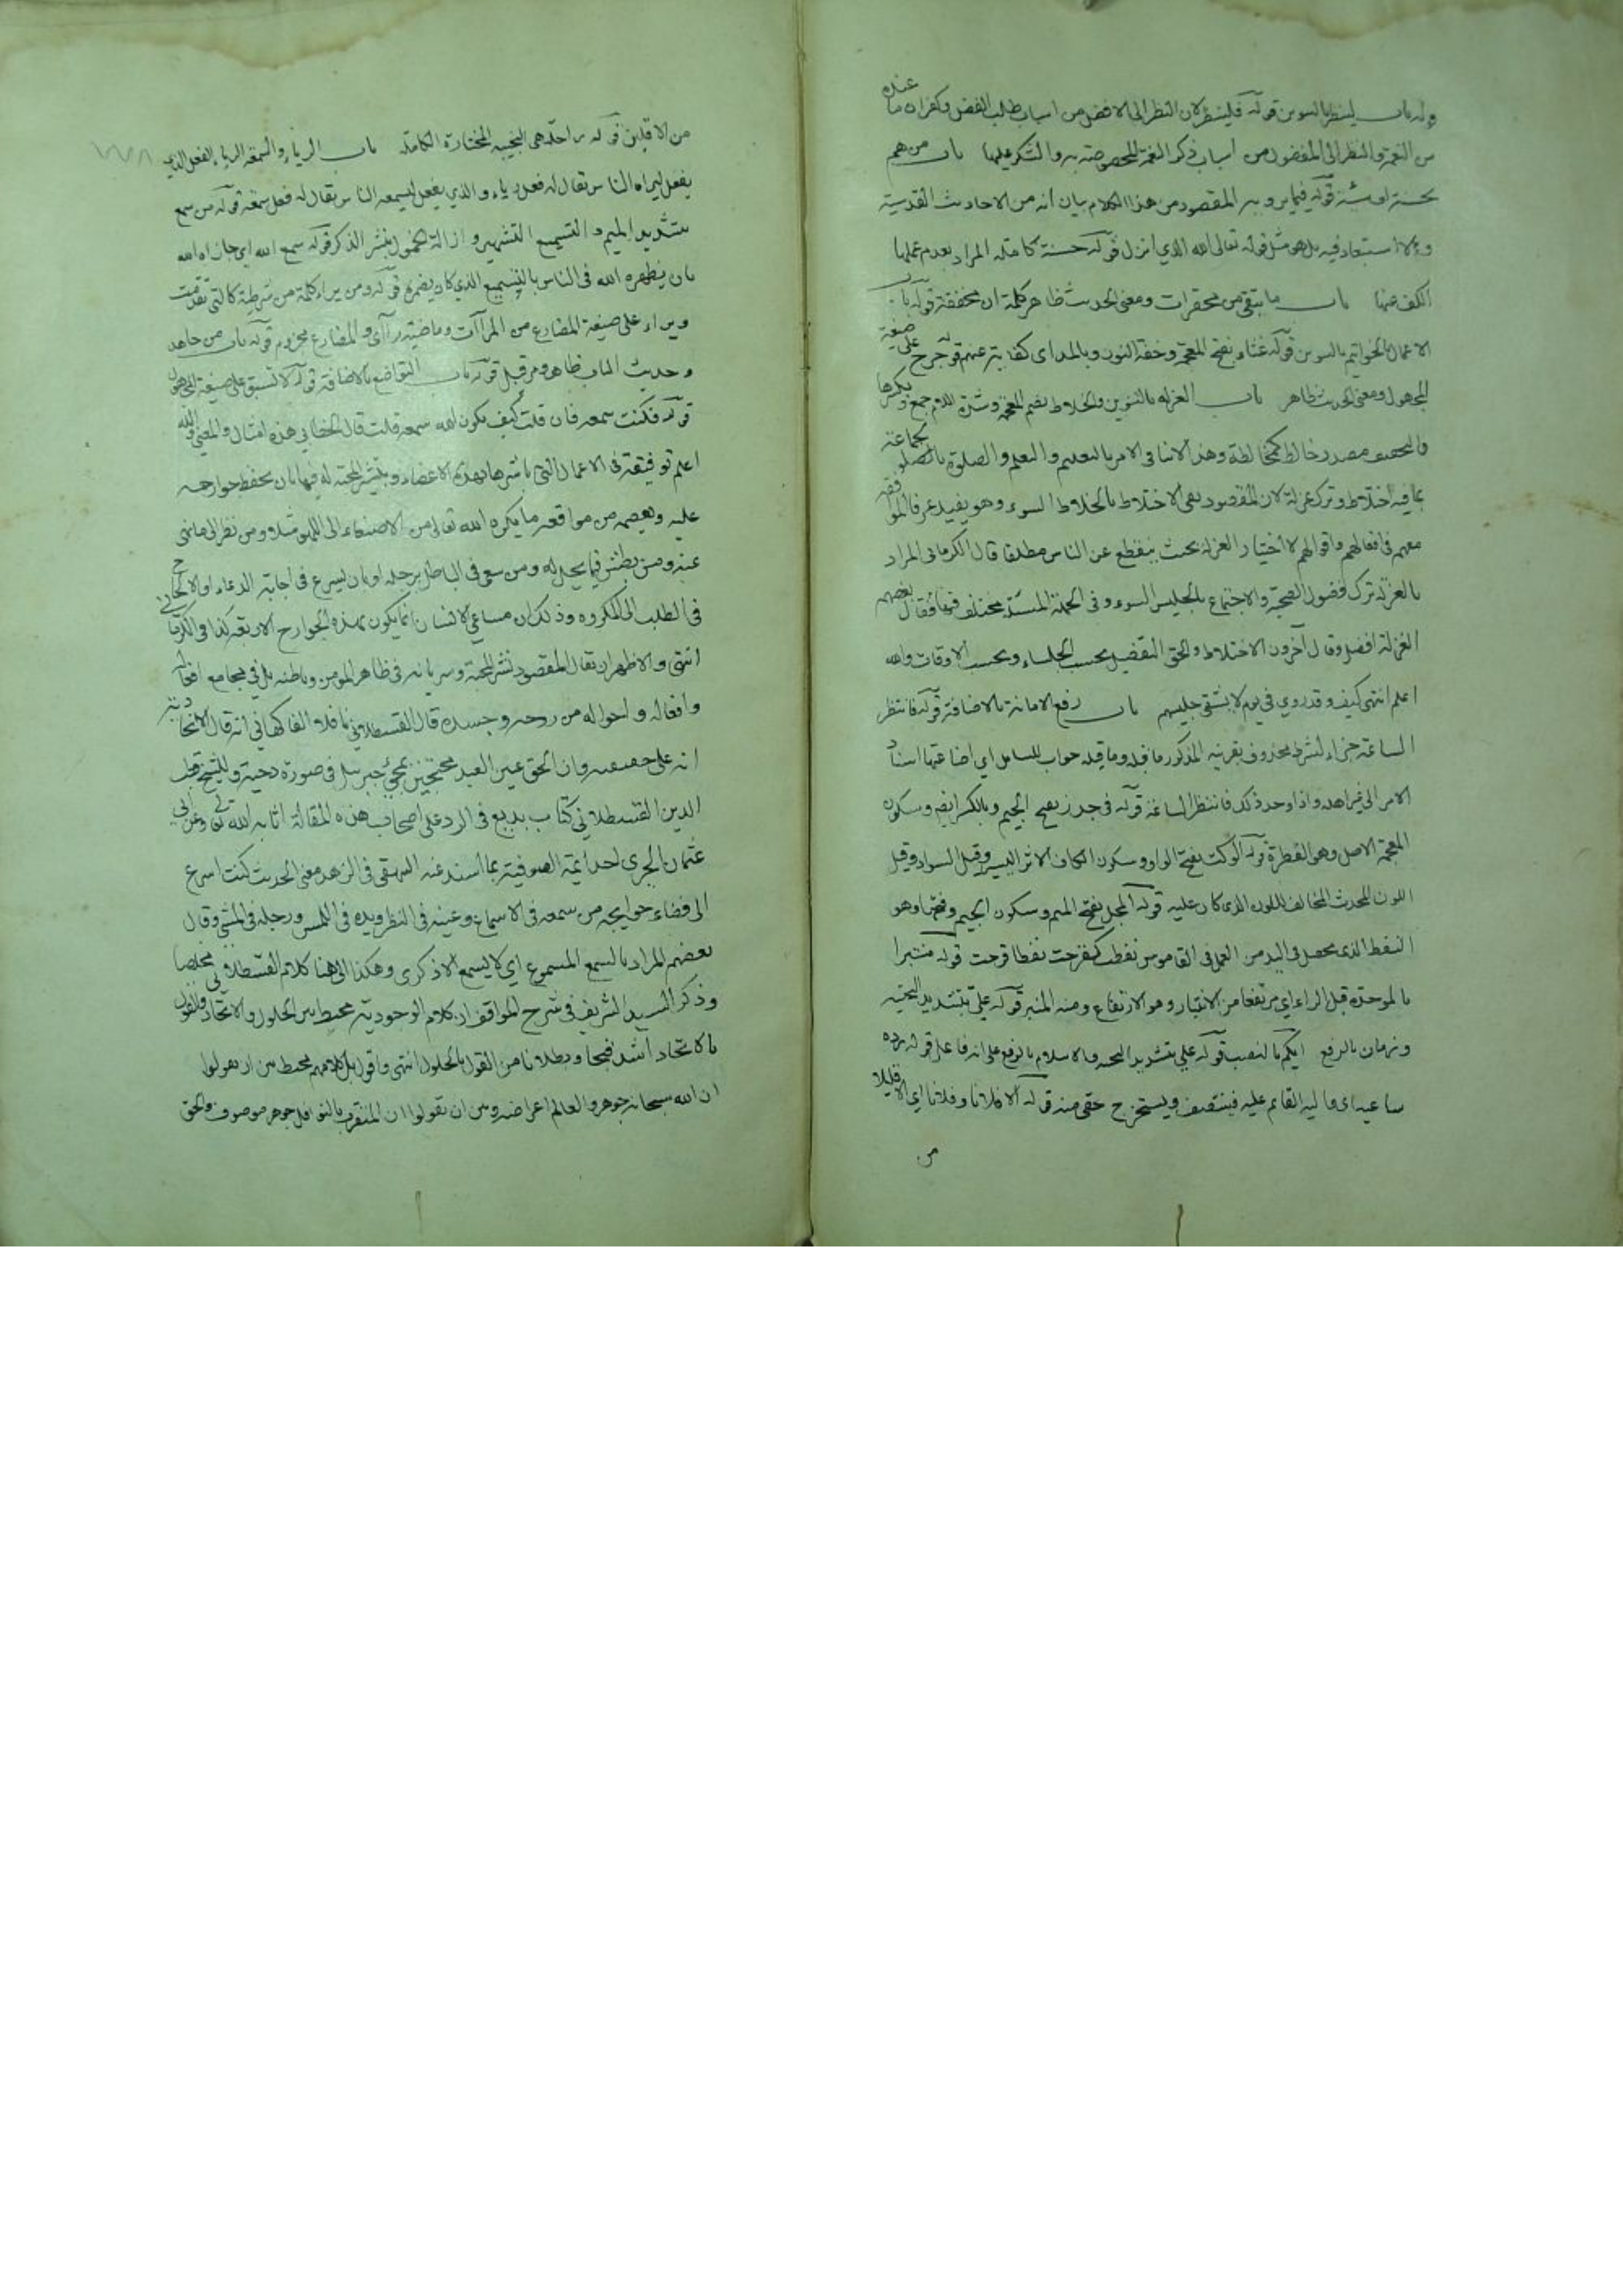 قوله باب لينظر بالتنوين قوله فلينظر لان النظر الى الافضل من اسباب طلب الفضل وكفران ما عنده
من النعمة والنظر الى المفضول من اسباب ذكر النعم المخصوصة به والشكر عليها باب من هم
بحسنة او سيئة قوله فيما يرويه المقصود من هذا الكلام بيان انه من الاحاديث القدسية
ولا استبعاد فيه بل هو مثل قوله تعالى الله الذي انزل قوله حسنة كاملة المراد بعدم عملها
الكف عنها باب ما يتقى من محقرات ومعنى الحديث ظاهر كلمة ان مخففة قوله باب
الاعمال بالخواتيم بالتنوين قوله غناء بفتح المعجمة وخفة النون وبالمد اى كفاية عنهم قوله جرح على صيغة
المجهول ومعنى الحديث ظاهر باب العزلة بالتنوين والخلاط بضم المعجمة وشدة اللام جمع وبكسرها
والتخفيف مصدر خالط كمخالطة وهذا لا ينافى الامر بالتعليم والتعلم والصلوة بالجماعة
بما فيه اختلاط وترك عزلة لان المقصود نفى الاختلاط بالخلاط السوء وهو يفيد عرفا الموافقة
معهم فى افعالهم واقوالهم لا اختيار العزلة بحيث ينقطع عن الناس مطلقا قال الكرمانى المراد
بالعزلة ترك فضول الصحبة والاجتماع بالجليس السوء وفى الجملة المسئلة مختلف فيها فقال بعضهم
العزلة افضل وقال آخرون الاختلاط والحق التفصيل بحسب الجلساء وبحسب الاوقات والله
اعلم انتهى كيف وقد روي فى يوم لا يشقى جليسهم باب رفع الامانة بالاضافة قوله فانتظر
الساعة جزاء لشرط محذوف بقرينة المذكور ما قبله وما قبله جواب للسائل اي اضاعتها اسناد
الامر الى غير اهله واذا وجد ذلك فانتظر الساعة قوله فى جذر بفتح الجيم وبالكسر ايضا وسكون
المعجمة الاصل وهو الفطرة قوله الوكت بفتح الواو وسكون الكاف الاثر اليسير وقيل السواد وقيل
اللون المحدث المخالف للون الذى كان عليه قوله المجل بفتح الميم وسكون الجيم وفتحها وهو
النفط الذى يحصل فى اليد من العمل فى القاموس نفطت كفرحت نفطا قرحت قوله منتبرا
بالموحدة قبل الراء اي مرتفعا من الانتبار وهو الارتفاع ومنه المنبر قوله عليّ بتشديد التحتية
وزمان بالرفع ايكم بالنصب قوله علي بتشديد التحتية والاسلام بالرفع على انه فاعل قوله رده
ساعيه اى واليه القائم عليه فينتصف ويستخرج حقي منه قوله الا فلانا وفلانا اي الا قليلا
من
من الاقلين قوله راحلة هى النجيبة المختارة الكاملة باب الرياء والسمعة الرياء الفعل الذي
يفعل ليراه الناس يقال له فعل رياء والذي يفعل ليسمعه الناس يقال له فعل سمعة قوله من سمع
بتشديد الميم والتسميع التشهير وازالة الخمول بنشر الذكر قوله سمع الله اي جازاه الله
بان يظهره الله فى الناس بالتسميع الذي كان يضمره قوله ومن يراء كلمة من شرطية كالتى تقدمت
ويراء على صيغة المضارع من المراآت وماضيه راآى والمضارع مجزوم قوله باب من جاهد
وحديث الباب ظاهر ومر قبل قوله باب التواضع بالاضافة قوله لا تسبق على صيغة المجهول
قوله فكنت سمعه فان قلت كيف يكون الله سمعه قلت قال الخطابي هذه امثال والمعنى والله
اعلم توفيقه فى الاعمال التى باشرها بهذه الاعضاء وتيسير المحبة له فيها بان يحفظ جوارحه
عليه ويعصمه من مواقعة ما يكره الله تعالى من الاصغاء الى اللهو مثلا ومن نظر الى ما نهى
عنه ومن بطش فيما يحل له ومن سعى فى الباطل برجله او بان يسرع فى اجابة الدعاء او الالحاح
فى الطلب الى المكروه وذلك ان مساعي الانسان انما يكون بهذه الجوارح الاربعة كذا فى الكرماني
انتهى والاظهر ان يقال المقصود نشر المحبة وسريانه فى ظاهر المؤمن وباطنه بل فى مجامع اقواله
وافعاله واحواله من روحه وجسده قال القسطلاني ناقلا عن الفاكهاني انه قال الاتحادية
انه على حقيقته وان الحق عين العبد محتجين بمجئ جبريل فى صورة دحية وللشيخ قطب
الدين القسطلاني كتاب بديع فى الرد على اصحاب هذه المقالة اثابه الله تعالى وعن ابي
عثمان الجيرى احد ائمة الصوفية بما اسند عنه البيهقى فى الزهد معنى الحديث كنت اسرع
الى قضاء حوايجه من سمعه فى الاسماع وعينه فى النظر ويده فى اللمس ورجله فى المشي وقال
بعضهم المراد بالسمع المسموع اي لا يسمع الا ذكرى وهكذا الى هنا كلام القسطلاني مخلصا
وذكر السيد الشريف فى شرح المواقف ان كلام الوجودية مخبط بين الحلول والاتحاد والقول
بالاتحاد اشد قبحا وبطلانا من القول بالحلول انتهى واقول بل كلامهم مخبط بين ان يقولوا
ان الله سبحانه جوهر والعالم اعراضه وبين ان يقولوا ان المتقرب بالنوافل جوهر موصوف والحق